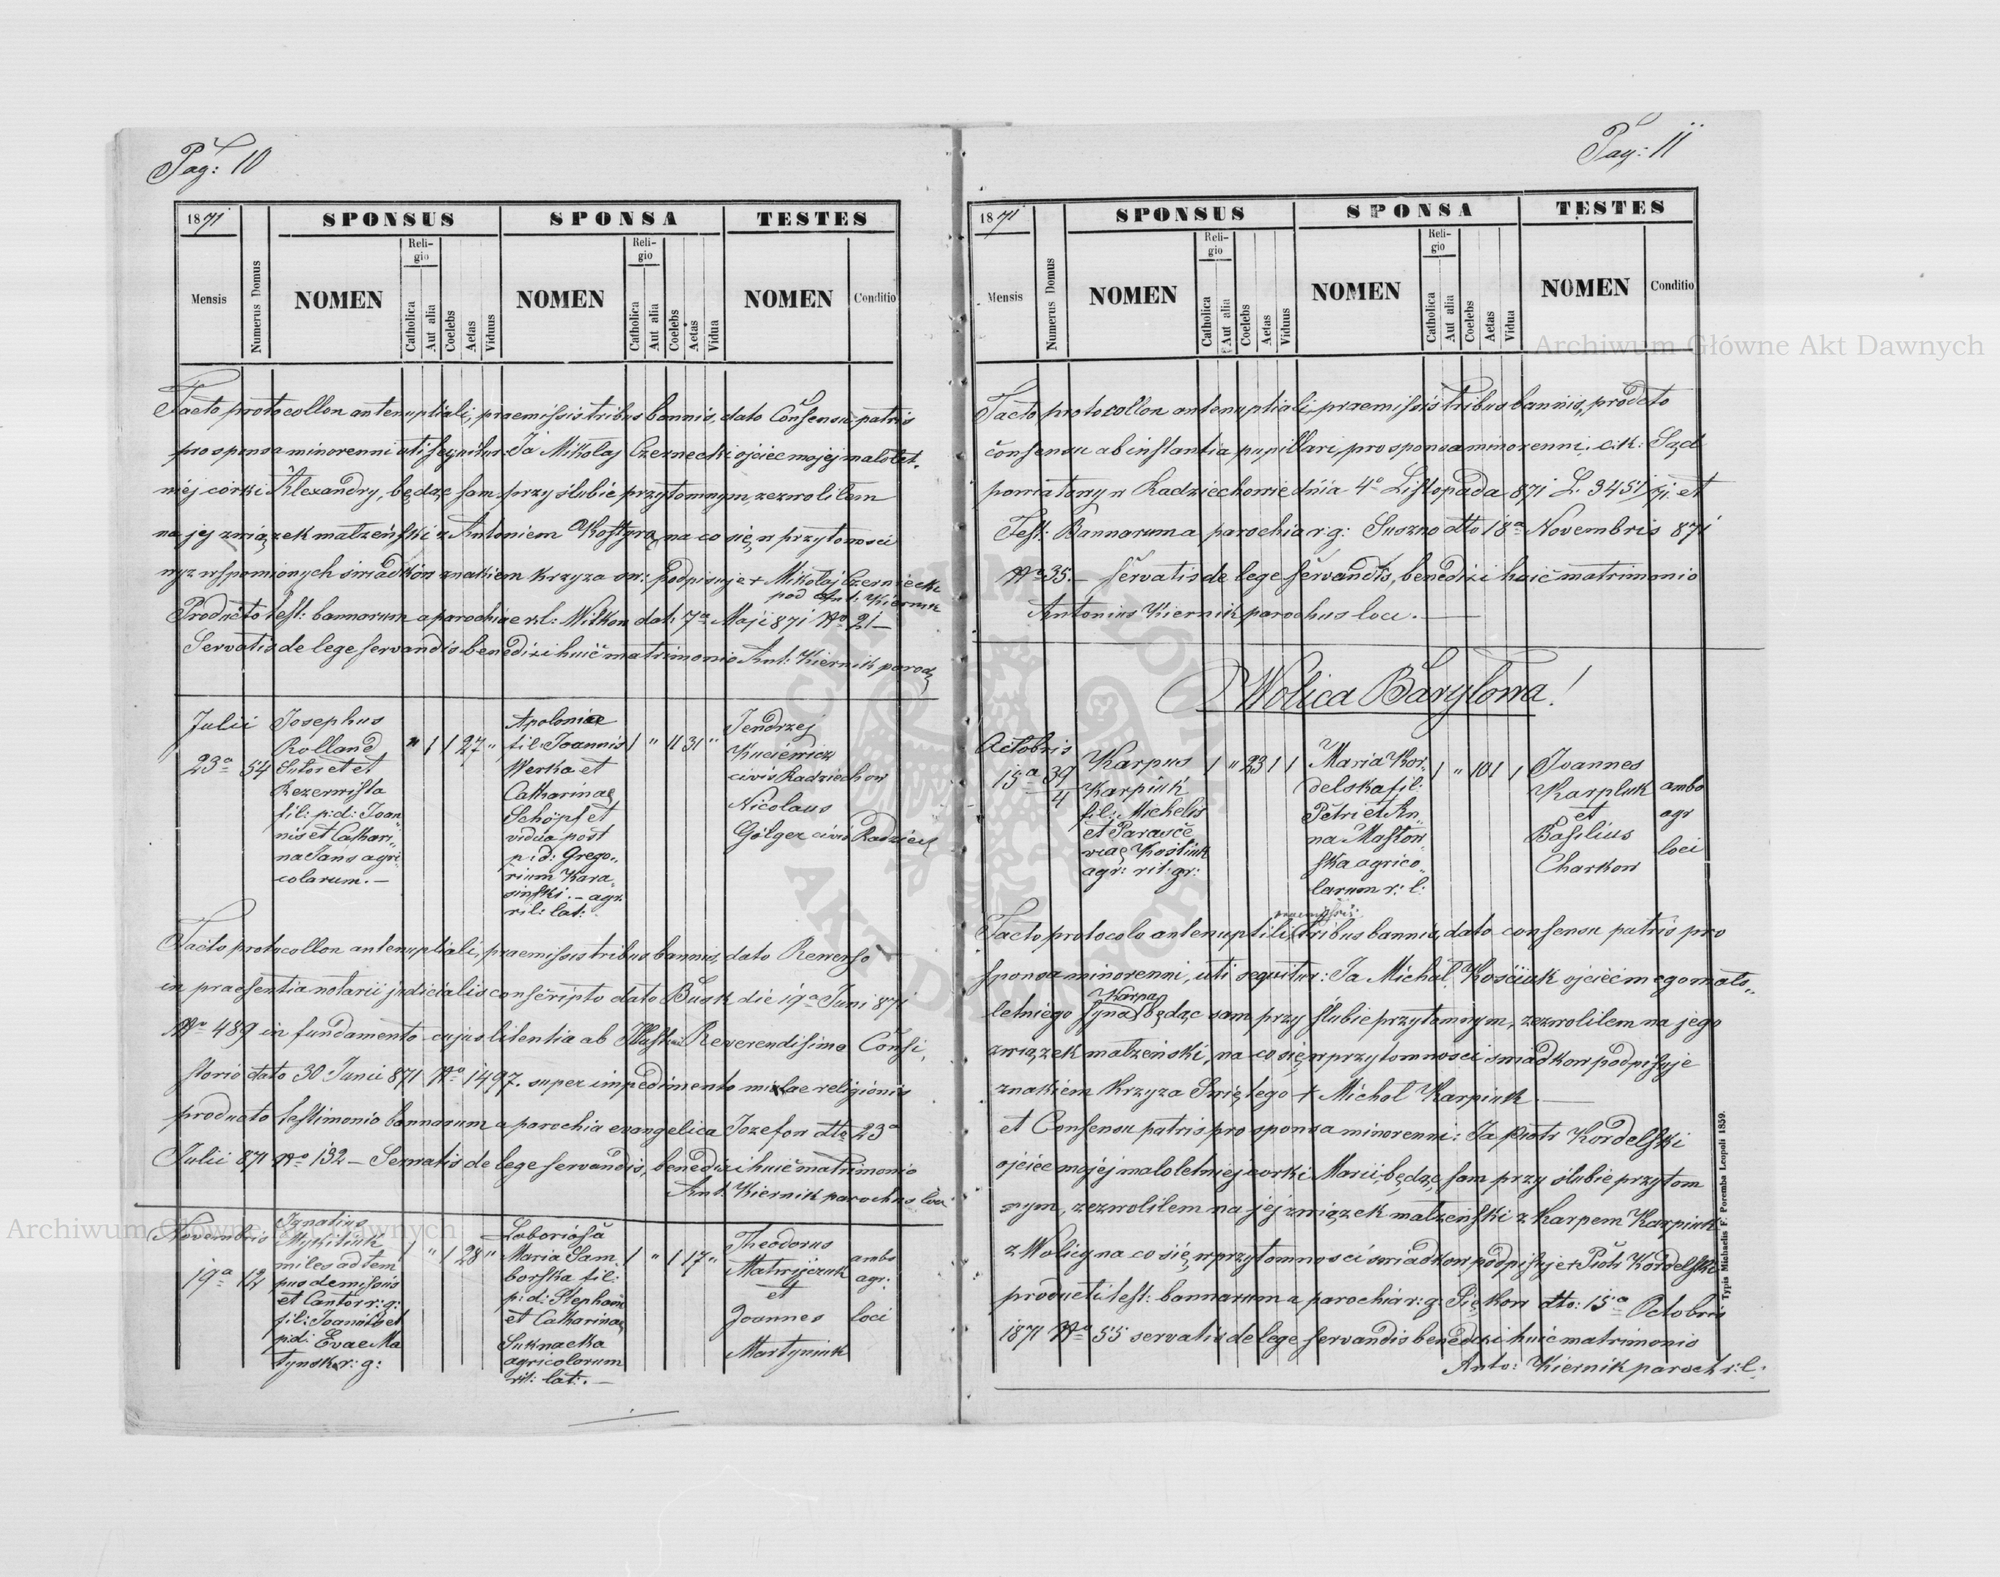 Pag: 10
1871
SPONSUS
SPONSA
TESTES
Mensis
Numerus Domus
NOMEN
Religio
Catholica
Aut alia
Coelebs
Aetas
Viduus
NOMEN
Religio
Catholica
Aut alia
Coelebs
Aetas
Vidua
NOMEN
Conditio
Facto protocollon antenuptiali, praemissis tribus bannis, dato Consensu patris
pro sponsa minorenni uti sequitur: Ja Mikołaj Czernecki ojciec mojej małolet-
niej córki Alexandry, będąc sam przy ślubie przytomnym, zezwoliłem
na jej związek małżeński z Antoniem Kostyrą, na co się w przytomności
wyz wspomionych świadków znakiem krzyża św: podpisuję + Mikołaj Czerniecki
pod Ant: Kiernik
Producto test: bannorum a parochiae r:l: Witkow dat: 7a Maji 871 No 21 –
Servatis de lege servandis benedixi huic matrimonio Ant: Kiernik paroch
Julii
23a
54
Josephus
Rolland
Sutor et et
Rezerwista
fil: p:d: Joan-
nis et Cathari-
na Jans agri-
colarum. –
" 1 1 27 "
Apoloniae
fil: Joannis
Werka et
Catharinae
Schöpf et
vidua post
p:d: Grego-
rium Kara-
sinski. – agr.
rit: lat:
1 " 11 31 "
Jendrzej
Kuciewicz
civis Radziechow
Nicolaus
Gölger civis Radziech
Facto protocollon antenuptiali, praemissis tribus bannis, dato Rewerso
in praesentia notarii judicialis conscripto dato Busk die 19a Juni 871
No 489 in fundamento cujus litentia ab Illustri Reverendisimo Consi-
storio dato 30 Junii 871 No 1497. super impedimento mixtae religionis
producto testimonio bannorum a parochia evangelica Jozefow dtto 23a
Julii 871 No 132 – Servatis de lege servandis, benedixi huic matrimonio
Ant: Kiernik parochus loci
Novembris
19a
12
Ignatius
miles ad tem
pus demissus
et Cantor r:g:
fil: Joannis et
p:d: Evae Ma
tynska r: g:
1 " 1 28 "
Laboriosa
Maria Sam-
borska fil:
p:d: Stephani
et Catharinae
Suknacka
agricolorum
rit: lat: –
1 " 1 17 "
Theodorus
Matwijczuk
et
Joannes
Martyniuk
ambo
agr:
loci
Pag: 11
1871
SPONSUS
SPONSA
TESTES
Mensis
Numerus Domus
NOMEN
Religio
Catholica
Aut alia
Coelebs
Aetas
Viduus
NOMEN
Religio
Catholica
Aut alia
Coelebs
Aetas
Vidua
NOMEN
Conditio
Facto protocollon antenuptiali, praemissis tribus bannis, prodcto
consensu ab instantia pupillari, pro sponsa minorenni. c.k: Sąd
powiatowy w Radziechowie dnia 4o Listopada 871 L. 3451 et
Test: Bannorum a parochia r:g: Suszno dtto 18a Novembris 871
No 35. – servatis de lege servandis, benedixi huic matrimonio
Antonius Kiernik parochus loci. –
Wolica Baryłowa!
Octobris
15a
39
4
Karpus
Karpiuk
fil: Michelis
et Parasce
viae Kościuk
agr: rit: gr:
1 " 23 1 1
Maria Kor-
delska fil:
Petri et An-
na Maston
ska agrico-
larum r: l:
1 " 10 1 1
Joannes
Karpluk
et
Basilius
Charkow
ambo
agr
loci
praemissis
Facto protocolo antenuptili tribus bannis, dato consensu patris pro
sponsa minorenni, uti sequitur: Ja Michał Kościuk ojciéc mego mało-
Karpa
letniego syna będąc sam przy ślubie przytomnym, zezwoliłem na jego
związek małżeński, na co się w przytomności świadkow podpisuje
znakiem Krzyza Swiętego + Michol Karpiuk –
et Consensu patris pro sponsa minorenni: Ja Piotr Kordelski
ojciéc mojéj małoletniej corki Marii, będąc sam przy ślubie przytom
nym, zezwoliłem na jej związek małżeński z Karpem Karpiuk
z Wolicy na co się w przytomności swiadkow podpisuje + Piotr Kordelski
producti test: bannorum a parochia r: g: Sieńkow dto: 15a Octobris
1871 No 55 servatis de lege servandis benedixi huic matrimonio
Anto: Kiernik paroch r:l:
Typis Michaelis F. Poremba Leopoli 1859.
Archiwum Główne Akt Dawnych
Archiwum Główne Akt Dawnych